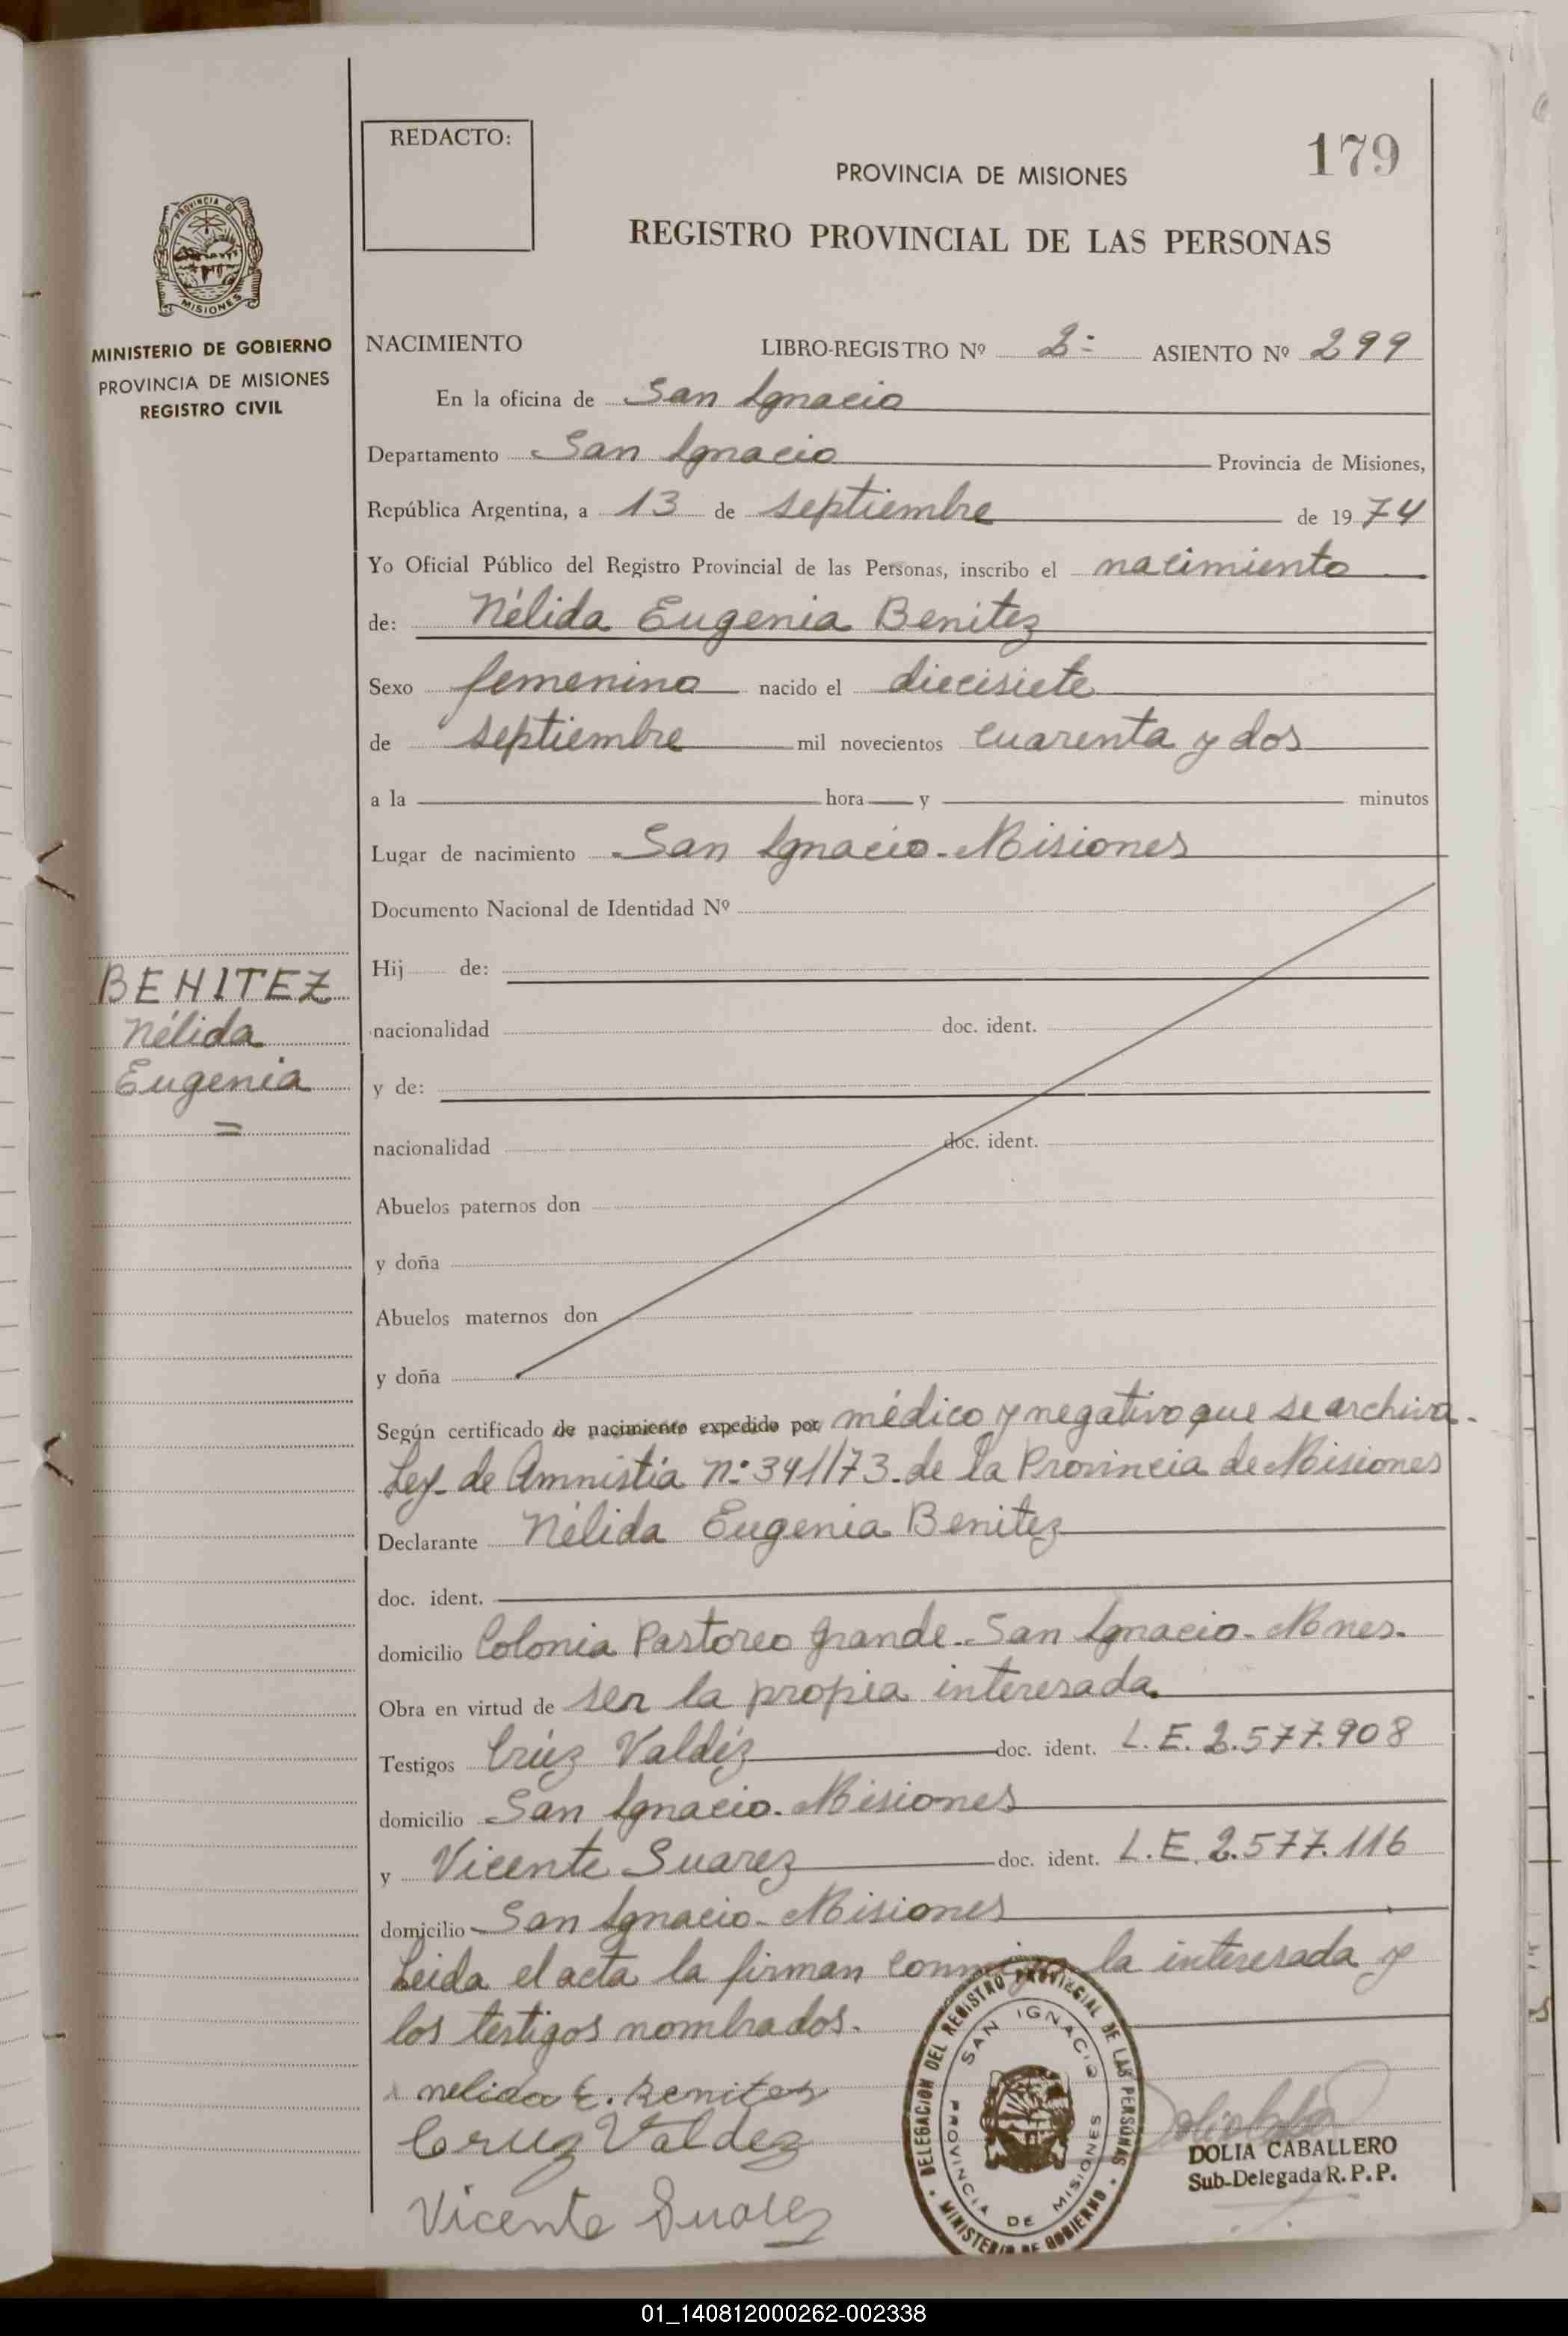 REDACTO:
179
PROVINCIA DE MISIONES
REGISTRO PROVINCIAL DE LAS PERSONAS
PROVINCIA DE
MISIONES
MINISTERIO DE GOBIERNO
PROVINCIA DE MISIONES
REGISTRO CIVIL
NACIMIENTO LIBRO-REGISTRO Nº 2º ASIENTO Nº 299
En la oficina de San Ignacio
Departamento San Ignacio Provincia de Misiones,
República Argentina, a 13 de septiembre de 1974
Yo Oficial Público del Registro Provincial de las Personas, inscribo el nacimiento
de: Nélida Eugenia Benitez
Sexo femenino nacido el diecisiete
de septiembre mil novecientos cuarenta y dos
a la hora y minutos
Lugar de nacimiento San Ignacio - Misiones
Documento Nacional de Identidad Nº
Hij de:
BENITEZ
Nélida
Eugenia
=
nacionalidad doc. ident.
y de:
nacionalidad doc. ident.
Abuelos paternos don
y doña
Abuelos maternos don
y doña
Según certificado de nacimiento expedido por médico y negativo que se archiva.
Ley de Amnistía nº 341/73. de la Provincia de Misiones
Declarante Nélida Eugenia Benitez
doc. ident.
domicilio Colonia Pastoreo Grande. San Ignacio - Mnes.
Obra en virtud de ser la propia interesada.
Testigos Crúz Valdéz doc. ident. L.E. 2.577.908
domicilio San Ignacio. Misiones
y Vicente Suarez doc. ident. L.E. 2.577.116
domicilio San Ignacio - Misiones
Leida el acta la firman conmigo la interesada y
los testigos nombrados.
nelida E. Benites
Cruz Valdez
Vicente Suarez
DELEGACION DEL REGISTRO PROVINCIAL DE LAS PERSONAS
MINISTERIO DE GOBIERNO
SAN IGNACIO
PROVINCIA DE MISIONES
DOLIA CABALLERO
Sub-Delegada R. P. P.
01_140812000262-002338